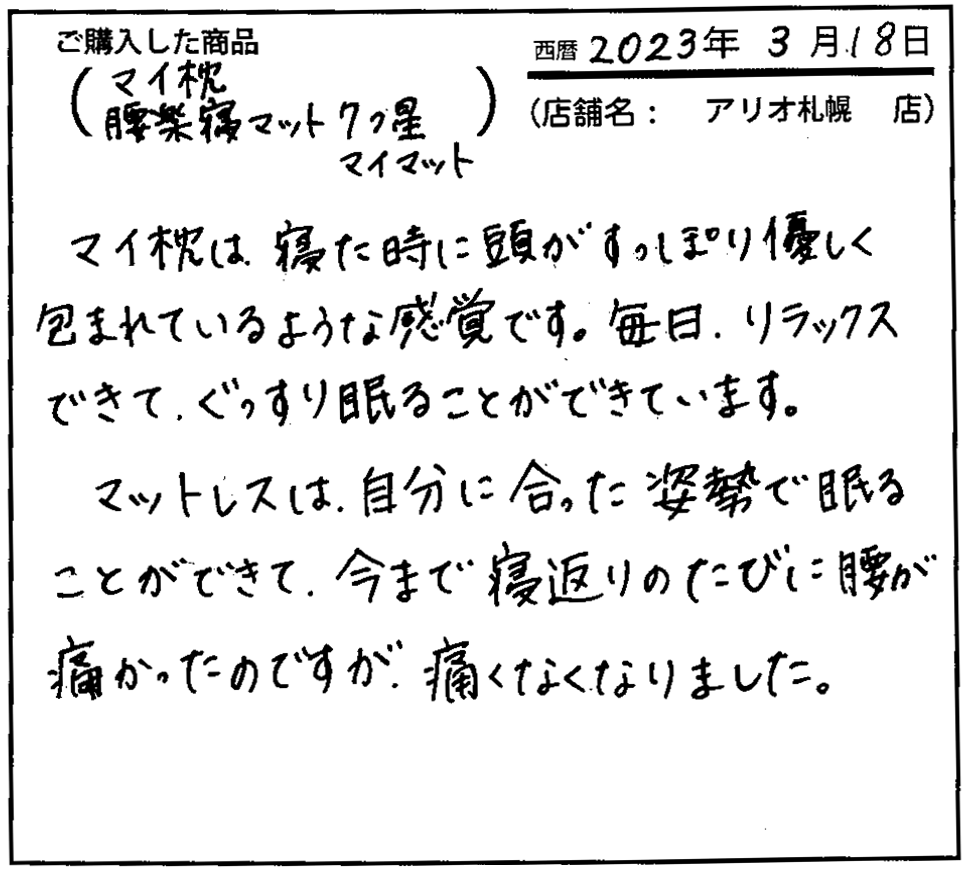 ご購入した商品
西暦 2023年 3月18日
(マイ枕
腰楽寝マット 7つ星
マイマット)
(店舗名: アリオ札幌 店)
マイ枕は、寝た時に頭がすっぽり優しく
包まれているような感覚です。毎日、リラックス
できて、ぐっすり眠ることができています。
マットレスは、自分に合った姿勢で眠る
ことができて、今まで寝返りのたびに腰が
痛かったのですが、痛くなくなりました。